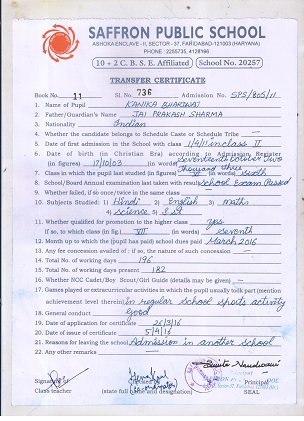 SAFFRON PUBLIC SCHOOL
ASHOKA ENCLAVE - II, SECTOR - 37, FARIDABAD-121003 (HARYANA)
PHONE : 2255735, 4128196
10 + 2 C. B. S. E. Affiliated School No. 20257
TRANSFER CERTIFICATE
Book No. 11 Sl. No. 736 Admission No. SPS/805/11
1. Name of Pupil KANIKA BHARDWAJ
2. Father/Guardian's Name JAI PRAKASH SHARMA
3. Nationality Indian
4. Whether the candidate belongs to Schedule Caste or Schedule Tribe —
5. Date of first admission in the School with class 1/4/11 in class II
6. Date of birth (in Christian Era) according to Admission Register
(in figures) 17/10/03 (in words) Seventeenth October Two
Thousand Three
7. Class in which the pupil last studied (in figures) VI (in words) Sixth
8. School/Board Annual examination last taken with result School Exam Passed
9. Whether failed, if so once/twice in the same class —
10. Subjects Studied : 1) Hindi 2) English 3) math
4) science 5) S.St
11. Whether qualified for promotion to the higher class Yes
If so, to which class (in fig) VII (in words) Seventh
12. Month up to which the (pupil has paid) school dues paid March 2016
13. Any fee concession availed of : if so, the nature of such concession —
14. Total No. of working days 196
15. Total No. of working days present 182
16. Whether NCC Cadet/Boy Scout/Girl Guide (details may be given) —
17. Games played or extracurricular activities in which the pupil usually took part (mention
achievement level therein) In regular school sports activity
18. General conduct Good
19. Date of application for certificate 26/3/16
20. Date of issue of certificate 5/4/16
21. Reasons for leaving the school Admission in another school
22. Any other remarks —
Signature of
Class teacher
Checked by
(state full name and designation)
Principal
SEAL